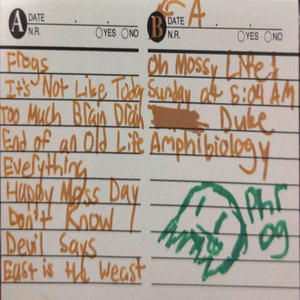 A DATE
N.R. YES NO
Frogs
It's Not Like Today
Too Much Brain Drain
End of an Old Life
Everything
Happy Moss Day
Don't Know
Devil Says
East is the Weast
A
B DATE
N.R. YES NO
Oh Mossy Life!
Sunday at 5:04 AM
Duke
Amphibiology